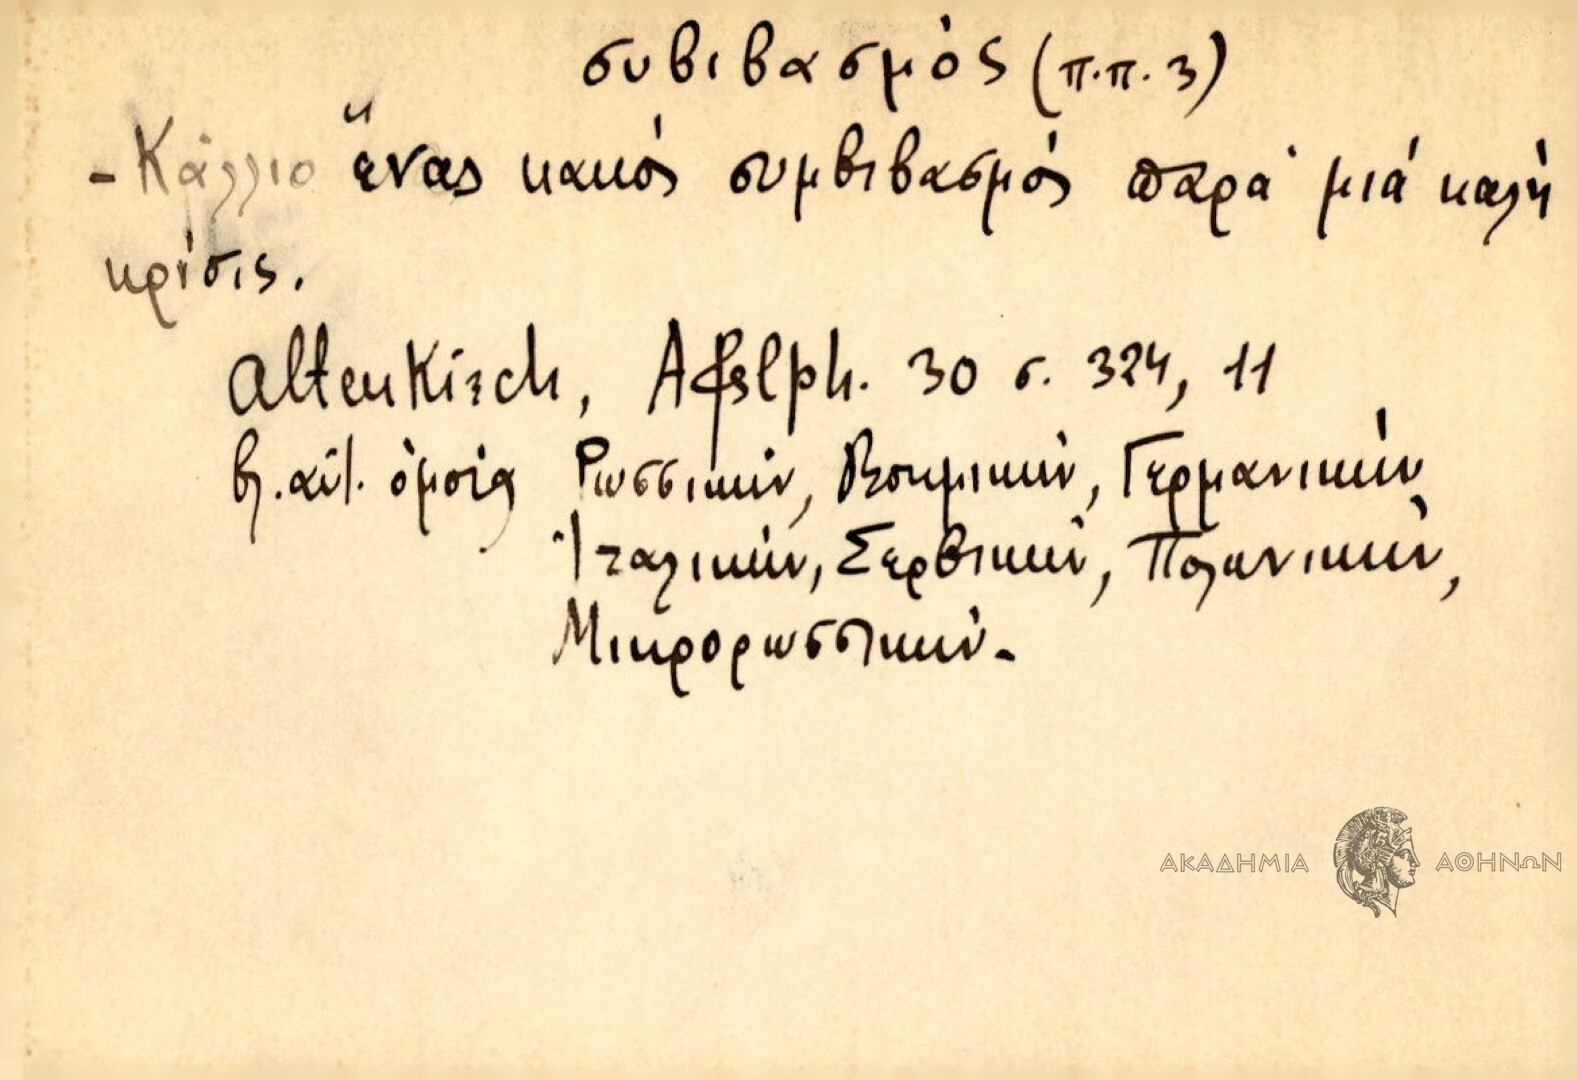 συβιβασμὸς (π.π. 3)
- Κάλλιο ἕνας κακὸς συμβιβασμὸς παρὰ μιὰ καλὴ
κρίσις.
Altenkirch, AfslPh. 30 σ. 324, 11
βλ. αὐτ. ὁμοία Ρωσσικήν, Βοημικήν, Γερμανικήν
Ἰταλικήν, Σερβικήν, Πολωνικήν,
Μικρορωσσικήν.-
ΑΚΑΔΗΜΙΑ ΑΘΗΝΩΝ